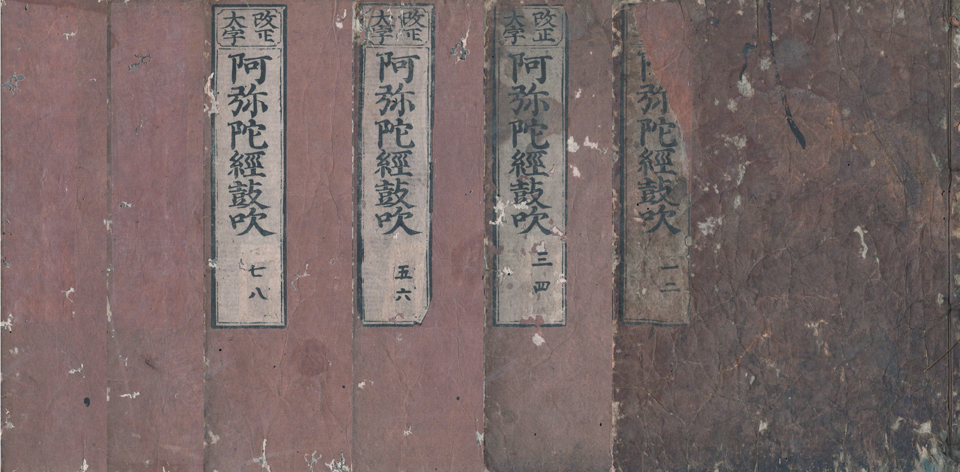 弥陀經鼓吹 一二
改正
大字
阿弥陀經鼓吹 三四
改正
大字
阿弥陀經鼓吹 五六
改正
大字
阿弥陀經鼓吹 七八